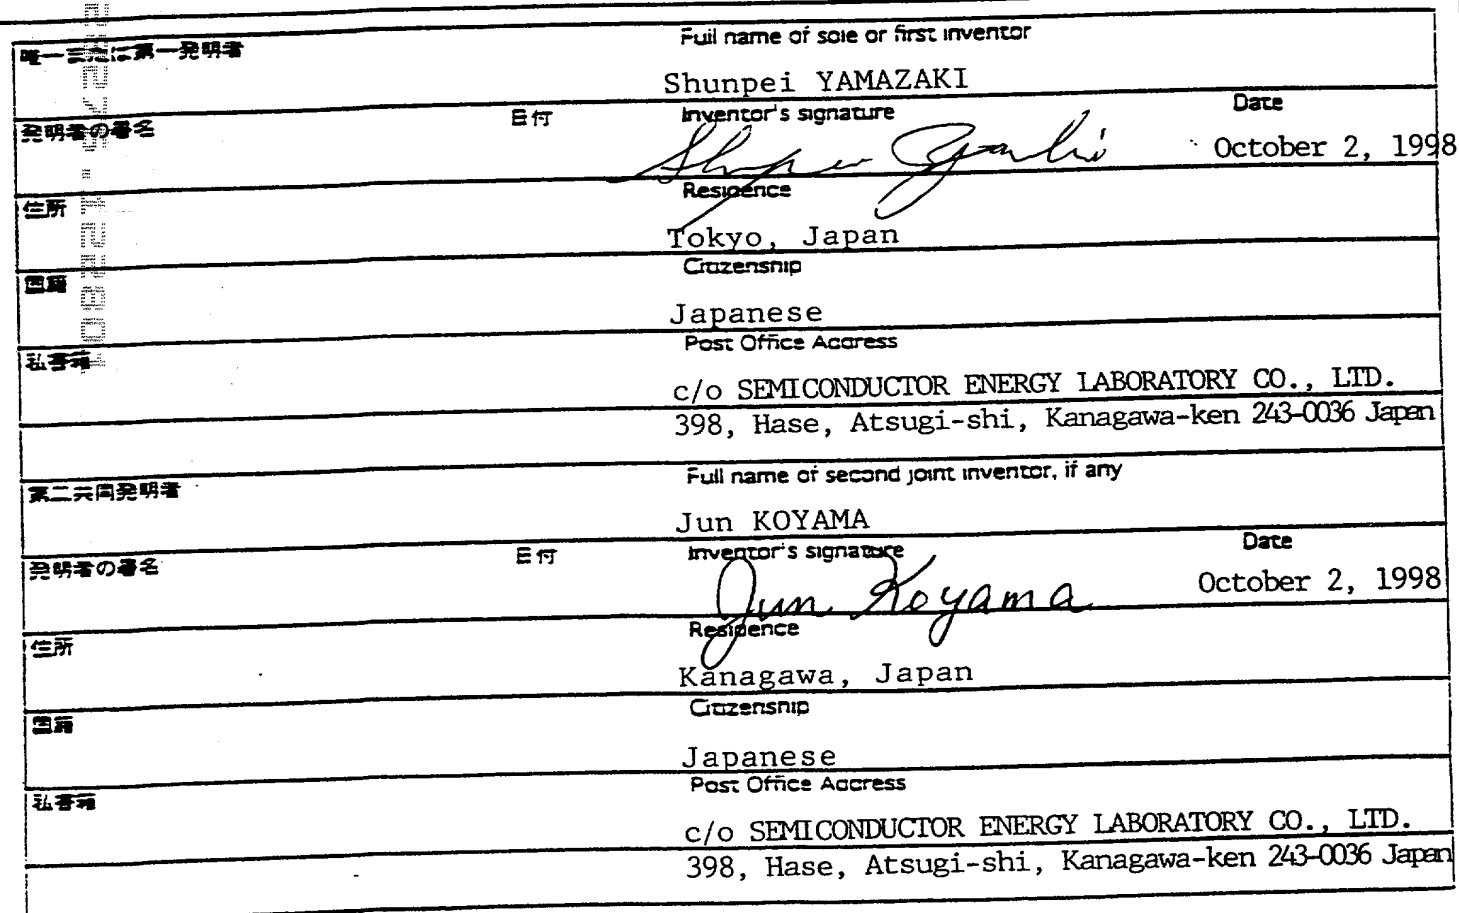 唯一または第一発明者 Full name of sole or first inventor
Shunpei YAMAZAKI
発明者の署名 日付 Inventor's signature Date
October 2, 1998
住所 Residence
Tokyo, Japan
国籍 Citizenship
Japanese
私書箱 Post Office Address
c/o SEMICONDUCTOR ENERGY LABORATORY CO., LTD.
398, Hase, Atsugi-shi, Kanagawa-ken 243-0036 Japan
第二共同発明者 Full name of second joint inventor, if any
Jun KOYAMA
発明者の署名 日付 Inventor's signature Date
Jun Koyama October 2, 1998
住所 Residence
Kanagawa, Japan
国籍 Citizenship
Japanese
私書箱 Post Office Address
c/o SEMICONDUCTOR ENERGY LABORATORY CO., LTD.
398, Hase, Atsugi-shi, Kanagawa-ken 243-0036 Japan